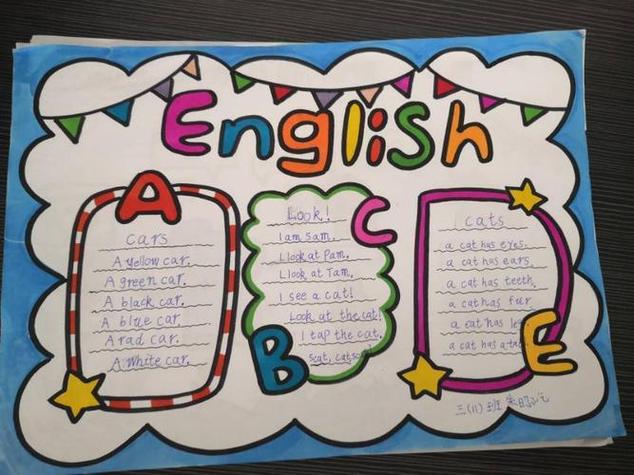 English
A
cars
A yellow car.
A green car.
A black car.
A blue car.
A rad car.
A white car.
B
C
Look!
I am sam.
I look at Pam.
I look at Tam.
I see a cat!
Look at the cat!
I tap the cat.
scat, cat,
E
cats
a cat has eyes.
a cat has ears.
a cat has teeth.
a cat has fur
a cat has
a cat has a
三(11)班